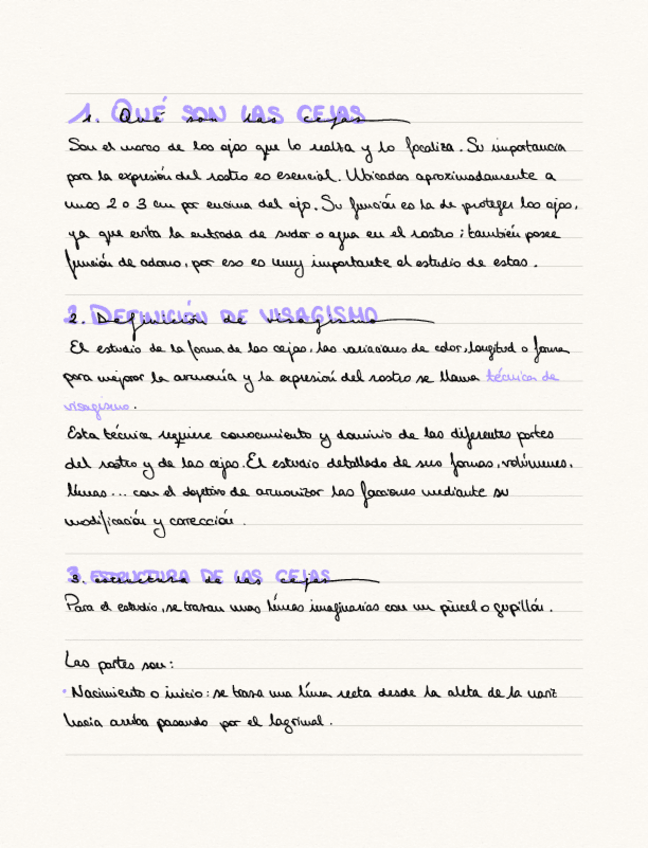 1. Qué son las cejas
Son el marco de los ojos que lo realza y lo focaliza. Su importancia
para la expresión del rostro es esencial. Ubicadas aproximadamente a
unos 2 o 3 cm por encima del ojo. Su función es la de proteger los ojos,
ya que evita la entrada de sudor o agua en el rostro; también posee
función de adorno, por eso es muy importante el estudio de estas.
2. Definición de visagismo
El estudio de la forma de las cejas, las variaciones de color, longitud o forma
para mejorar la armonía y la expresión del rostro se llama técnica de
visagismo.
Esta técnica requiere conocimiento y dominio de las diferentes partes
del rostro y de las cejas. El estudio detallado de sus formas, volúmenes,
líneas... con el objetivo de armonizar las facciones mediante su
modificación y corrección.
3. estructura de las cejas
Para el estudio, se trazan unas líneas imaginarias con un pincel o gupillón.
Las partes son:
· Nacimiento o inicio: se traza una línea recta desde la aleta de la nariz
hacia arriba pasando por el lagrimal.